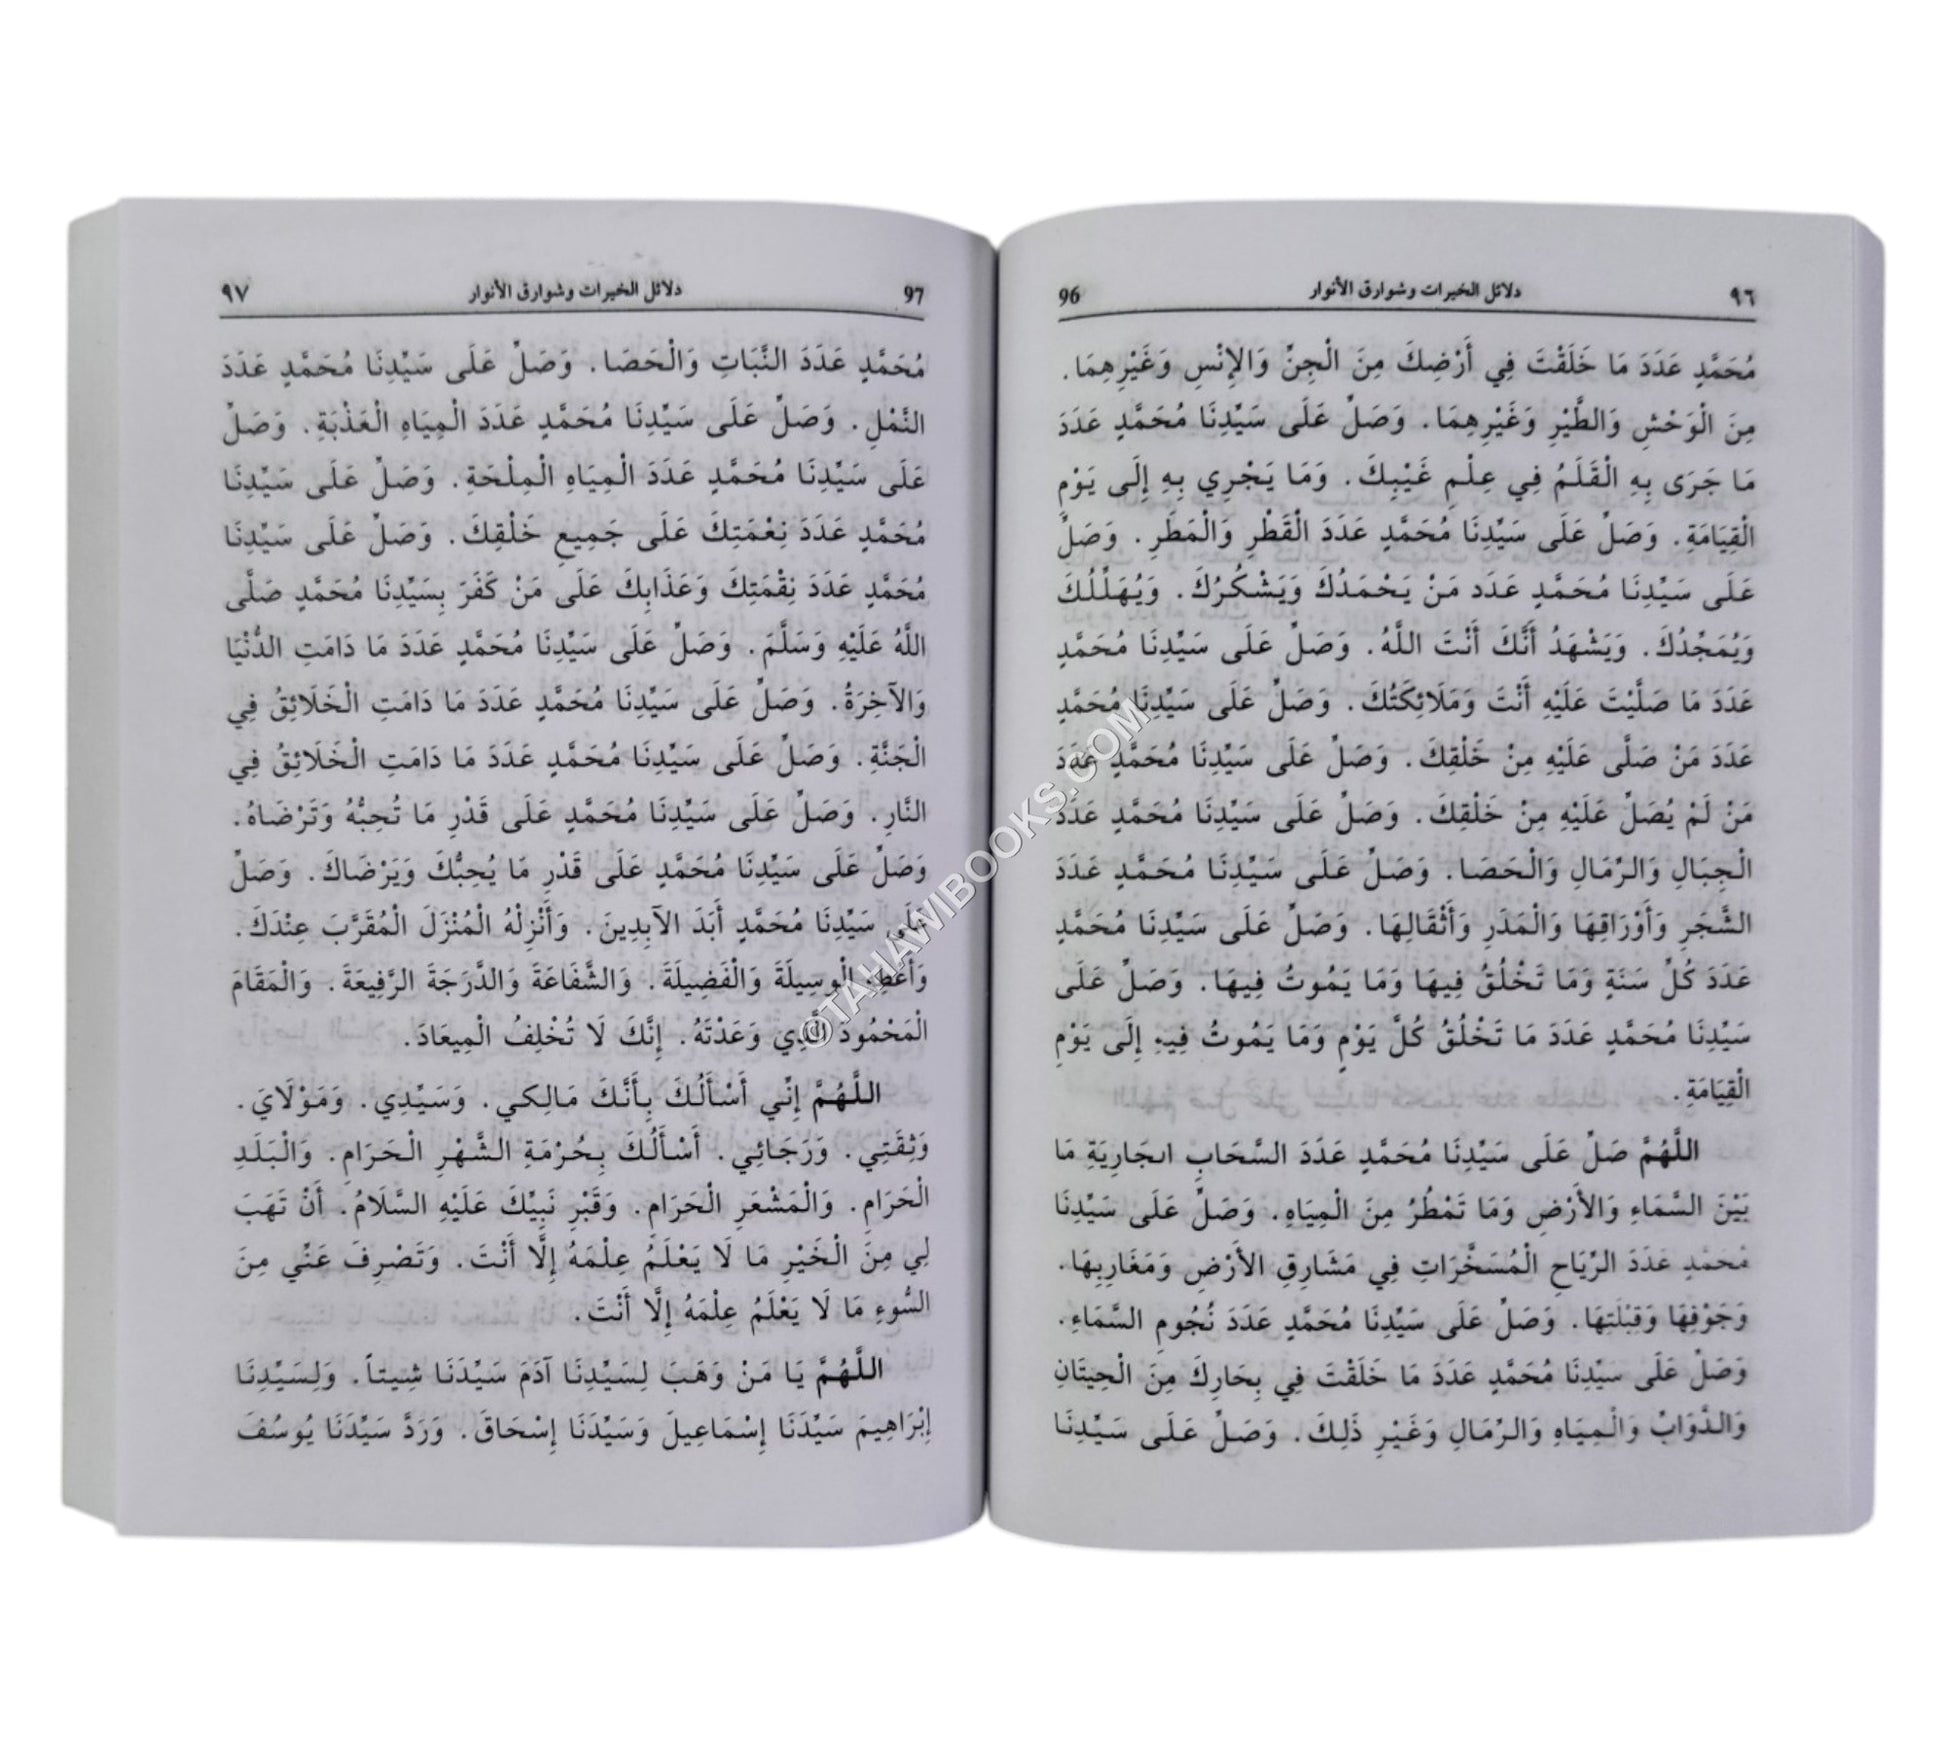 ٩٦ دلائل الخيرات وشوارق الأنوار 96
مُحَمَّدٍ عَدَدَ مَا خَلَقْتَ فِي أَرْضِكَ مِنَ الْجِنِّ وَالإِنْسِ وَغَيْرِهِمَا.
مِنَ الْوَحْشِ وَالطَّيْرِ وَغَيْرِهِمَا. وَصَلِّ عَلَى سَيِّدِنَا مُحَمَّدٍ عَدَدَ
مَا جَرَى بِهِ الْقَلَمُ فِي عِلْمِ غَيْبِكَ. وَمَا يَجْرِي بِهِ إِلَى يَوْمِ
الْقِيَامَةِ. وَصَلِّ عَلَى سَيِّدِنَا مُحَمَّدٍ عَدَدَ الْقَطْرِ وَالْمَطَرِ. وَصَلِّ
عَلَى سَيِّدِنَا مُحَمَّدٍ عَدَدَ مَنْ يَحْمَدُكَ وَيَشْكُرُكَ. وَيُهَلِّلُكَ
وَيُمَجِّدُكَ. وَيَشْهَدُ أَنَّكَ أَنْتَ اللَّهُ. وَصَلِّ عَلَى سَيِّدِنَا مُحَمَّدٍ
عَدَدَ مَا صَلَّيْتَ عَلَيْهِ أَنْتَ وَمَلَائِكَتُكَ. وَصَلِّ عَلَى سَيِّدِنَا مُحَمَّدٍ
عَدَدَ مَنْ صَلَّى عَلَيْهِ مِنْ خَلْقِكَ. وَصَلِّ عَلَى سَيِّدِنَا مُحَمَّدٍ عَدَدَ
مَنْ لَمْ يُصَلِّ عَلَيْهِ مِنْ خَلْقِكَ. وَصَلِّ عَلَى سَيِّدِنَا مُحَمَّدٍ عَدَدَ
الْجِبَالِ وَالرِّمَالِ وَالْحَصَا. وَصَلِّ عَلَى سَيِّدِنَا مُحَمَّدٍ عَدَدَ
الشَّجَرِ وَأَوْرَاقِهَا وَالْمَدَرِ وَأَثْقَالِهَا. وَصَلِّ عَلَى سَيِّدِنَا مُحَمَّدٍ
عَدَدَ كُلِّ سَنَةٍ وَمَا تَخْلُقُ فِيهَا وَمَا يَمُوتُ فِيهَا. وَصَلِّ عَلَى
سَيِّدِنَا مُحَمَّدٍ عَدَدَ مَا تَخْلُقُ كُلَّ يَوْمٍ وَمَا يَمُوتُ فِيهِ إِلَى يَوْمِ
الْقِيَامَةِ.
اللَّهُمَّ صَلِّ عَلَى سَيِّدِنَا مُحَمَّدٍ عَدَدَ السَّحَابِ الجَارِيَةِ مَا
بَيْنَ السَّمَاءِ وَالأَرْضِ وَمَا تَمْطُرُ مِنَ الْمِيَاهِ. وَصَلِّ عَلَى سَيِّدِنَا
مُحَمَّدٍ عَدَدَ الرِّيَاحِ الْمُسَخَّرَاتِ فِي مَشَارِقِ الأَرْضِ وَمَغَارِبِهَا.
وَجَوْفِهَا وَقِبْلَتِهَا. وَصَلِّ عَلَى سَيِّدِنَا مُحَمَّدٍ عَدَدَ نُجُومِ السَّمَاءِ.
وَصَلِّ عَلَى سَيِّدِنَا مُحَمَّدٍ عَدَدَ مَا خَلَقْتَ فِي بِحَارِكَ مِنَ الْحِيتَانِ
وَالدَّوَابِّ وَالْمِيَاهِ وَالرِّمَالِ وَغَيْرِ ذَلِكَ. وَصَلِّ عَلَى سَيِّدِنَا
97 دلائل الخيرات وشوارق الأنوار ٩٧
مُحَمَّدٍ عَدَدَ النَّبَاتِ وَالْحَصَا. وَصَلِّ عَلَى سَيِّدِنَا مُحَمَّدٍ عَدَدَ
النَّمْلِ. وَصَلِّ عَلَى سَيِّدِنَا مُحَمَّدٍ عَدَدَ الْمِيَاهِ الْعَذْبَةِ. وَصَلِّ
عَلَى سَيِّدِنَا مُحَمَّدٍ عَدَدَ الْمِيَاهِ الْمِلْحَةِ. وَصَلِّ عَلَى سَيِّدِنَا
مُحَمَّدٍ عَدَدَ نِعْمَتِكَ عَلَى جَمِيعِ خَلْقِكَ. وَصَلِّ عَلَى سَيِّدِنَا
مُحَمَّدٍ عَدَدَ نِقْمَتِكَ وَعَذَابِكَ عَلَى مَنْ كَفَرَ بِسَيِّدِنَا مُحَمَّدٍ صَلَّى
اللَّهُ عَلَيْهِ وَسَلَّمَ. وَصَلِّ عَلَى سَيِّدِنَا مُحَمَّدٍ عَدَدَ مَا دَامَتِ الدُّنْيَا
وَالآخِرَةُ. وَصَلِّ عَلَى سَيِّدِنَا مُحَمَّدٍ عَدَدَ مَا دَامَتِ الْخَلَائِقُ فِي
الْجَنَّةِ. وَصَلِّ عَلَى سَيِّدِنَا مُحَمَّدٍ عَدَدَ مَا دَامَتِ الْخَلَائِقُ فِي
النَّارِ. وَصَلِّ عَلَى سَيِّدِنَا مُحَمَّدٍ عَلَى قَدْرِ مَا تُحِبُّهُ وَتَرْضَاهُ.
وَصَلِّ عَلَى سَيِّدِنَا مُحَمَّدٍ عَلَى قَدْرِ مَا يُحِبُّكَ وَيَرْضَاكَ. وَصَلِّ
عَلَى سَيِّدِنَا مُحَمَّدٍ أَبَدَ الآبِدِينَ. وَأَنْزِلْهُ الْمُنْزَلَ الْمُقَرَّبَ عِنْدَكَ.
وَأَعْطِهِ الْوَسِيلَةَ وَالْفَضِيلَةَ. وَالشَّفَاعَةَ وَالدَّرَجَةَ الرَّفِيعَةَ. وَالْمَقَامَ
الْمَحْمُودَ الَّذِي وَعَدْتَهُ. إِنَّكَ لَا تُخْلِفُ الْمِيعَادَ.
اللَّهُمَّ إِنِّي أَسْأَلُكَ بِأَنَّكَ مَالِكِي. وَسَيِّدِي. وَمَوْلَايَ.
وَثِقَتِي. وَرَجَائِي. أَسْأَلُكَ بِحُرْمَةِ الشَّهْرِ الْحَرَامِ. وَالْبَلَدِ
الْحَرَامِ. وَالْمَشْعَرِ الْحَرَامِ. وَقَبْرِ نَبِيِّكَ عَلَيْهِ السَّلَامُ. أَنْ تَهَبَ
لِي مِنَ الْخَيْرِ مَا لَا يَعْلَمُ عِلْمَهُ إِلَّا أَنْتَ. وَتَصْرِفَ عَنِّي مِنَ
السُّوءِ مَا لَا يَعْلَمُ عِلْمَهُ إِلَّا أَنْتَ.
اللَّهُمَّ يَا مَنْ وَهَبَ لِسَيِّدِنَا آدَمَ سَيِّدَنَا شِيتاً. وَلِسَيِّدِنَا
إِبْرَاهِيمَ سَيِّدَنَا إِسْمَاعِيلَ وَسَيِّدَنَا إِسْحَاقَ. وَرَدَّ سَيِّدَنَا يُوسُفَ
©TAHAWIBOOKS.COM